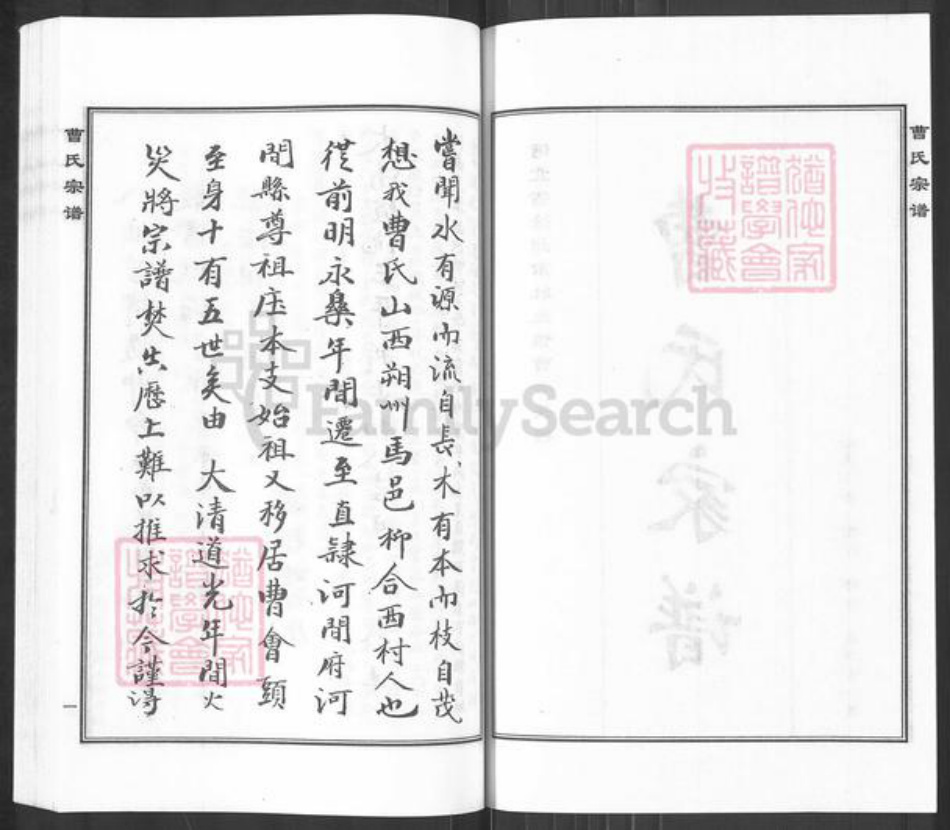 曹氏宗谱
猶他家
譜學會
收藏
嘗聞水有源而流自長木有本而枝自茂
想我曹氏山西朔州馬邑柳合西村人也
從前明永樂年間遷至直隸河間府河
間縣尊祖庄本支始祖又移居曹會頭
至身十有五世矣由 大清道光年間火
災將宗譜焚出歷上難以推求於今謹淂
猶他家
譜學會
收藏
曹氏宗谱
一
FamilySearch